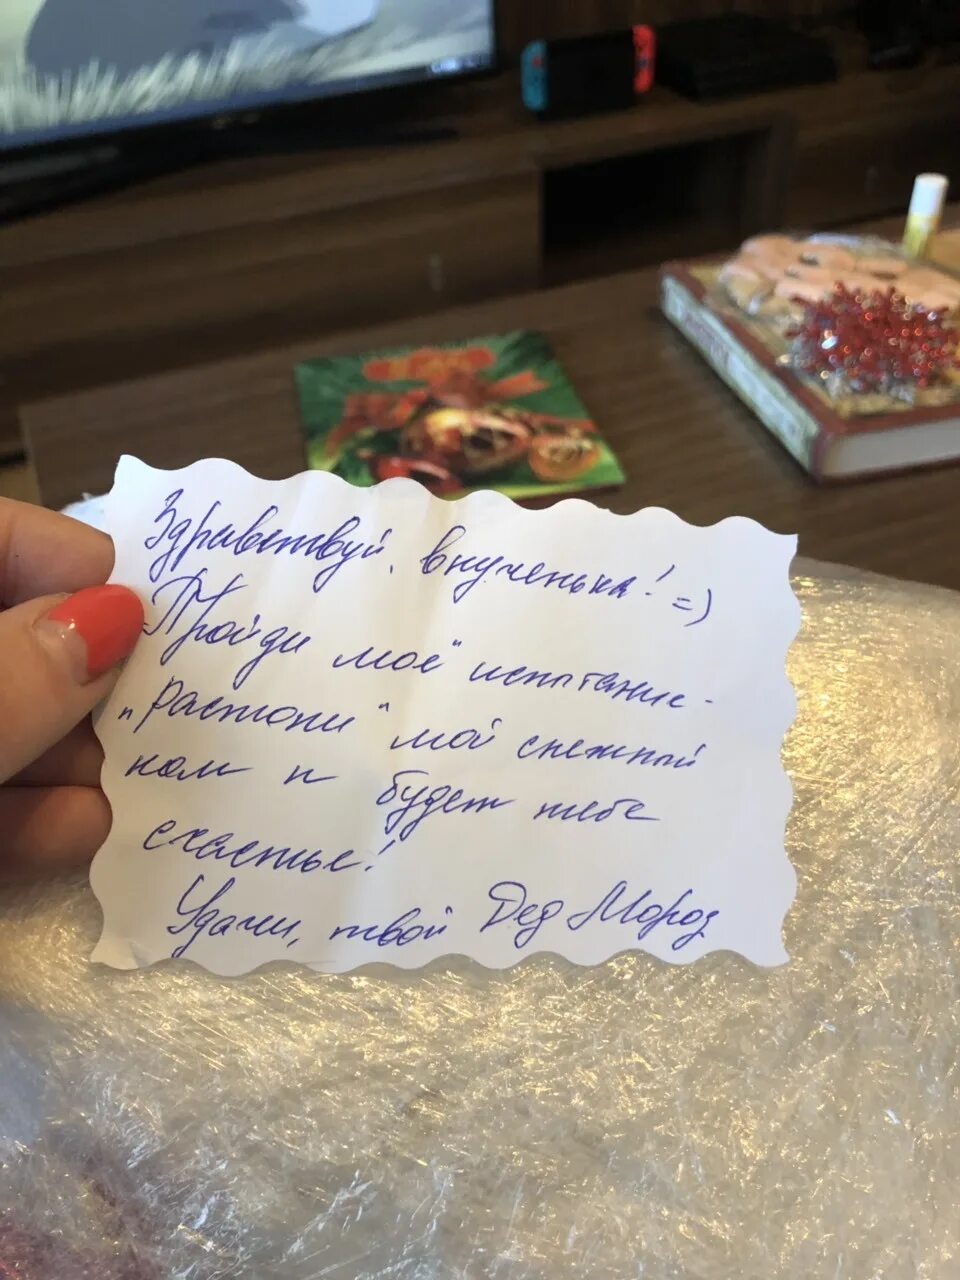 Здравствуй, внученька! =)
Пройди моё испытание -
"растопи" мой снежный
ком и будет тебе
счастье!
Удачи, твой Дед Мороз